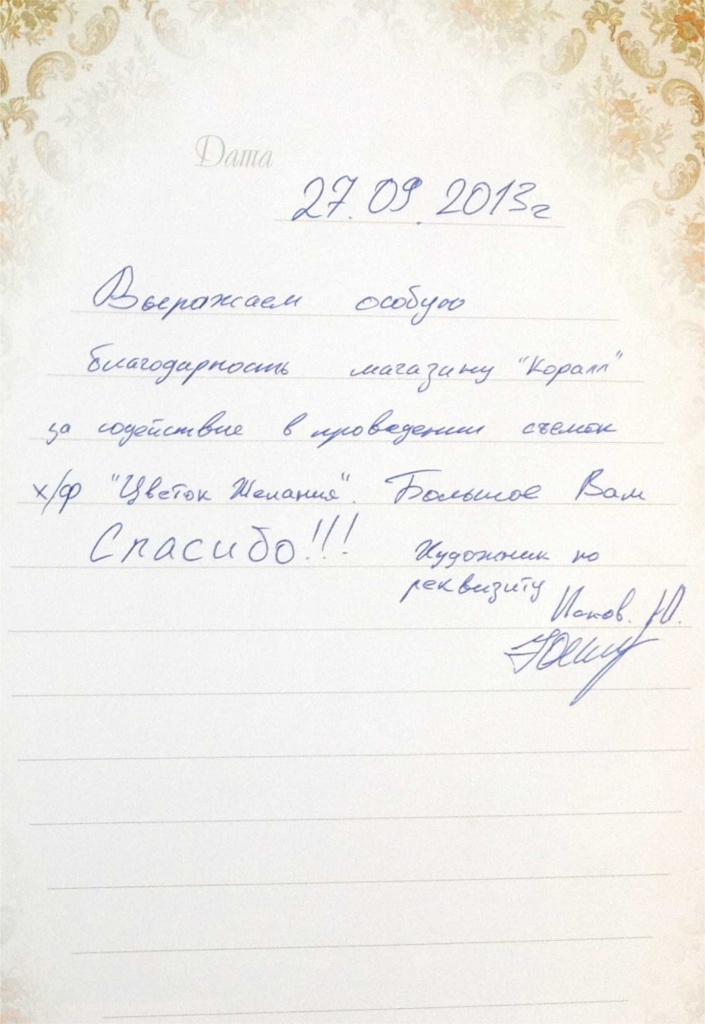 Дата
27.09.2013г
Выражаем особую
благодарность магазину "Коралл"
за содействие в проведении съемок
х/ф "Цветок Желания". Большое Вам
Спасибо!!! Художник по
реквизиту
Ю.